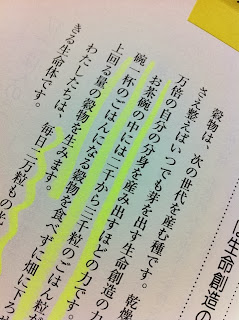 は生命創造の
穀物は、次の世代を産む種です。乾燥
さえ整えばいつでも芽を出す生命創造の力
万倍の自分の分身を産み出すほどの力です。
お茶碗の中には二千から三千粒のごはん粒が
碗一杯のごはんとなる穀物を食べずに畑に下ろせ
上回る量の穀物を生みます。
わたしたちは、毎日一万粒もの
きる生命体です。